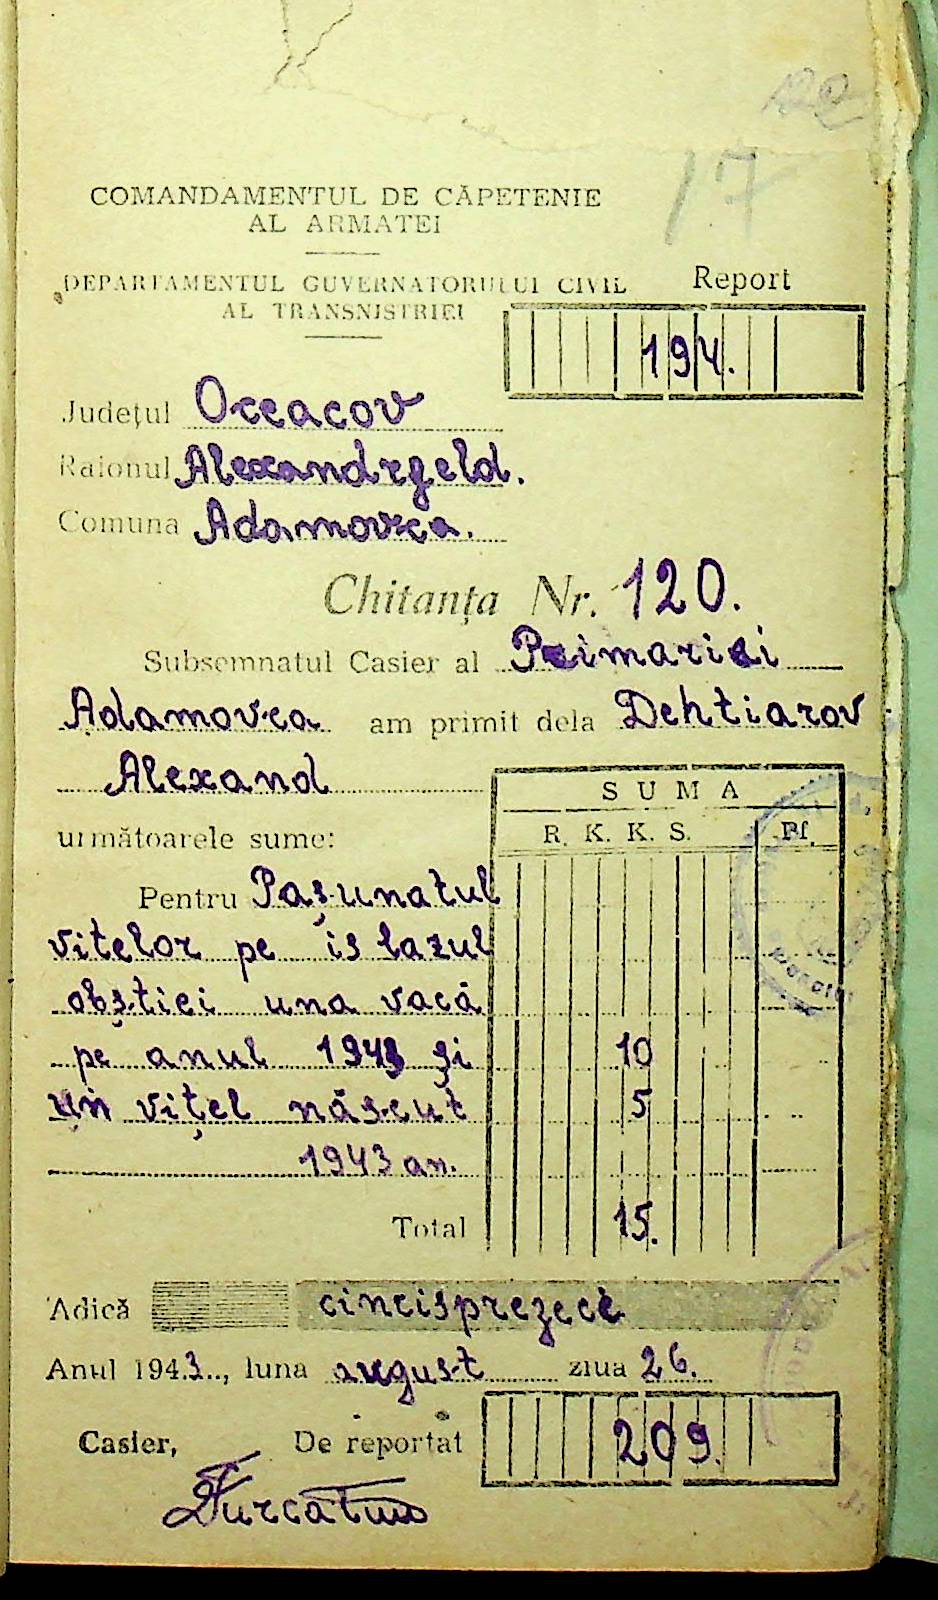 17
COMANDAMENTUL DE CĂPETENIE
AL ARMATEI
DEPARTAMENTUL GUVERNATORULUI CIVIL
AL TRANSNISTRIEI
Report
194.
Județul Oceacov
Raionul Alexandrfeld.
Comuna Adamovca.
Chitanța Nr. 120.
Subsemnatul Casier al Primariei
Adamovca am primit dela Dehtiarov
Alexand
SUMA
următoarele sume: R. K. K. S. Pf.
Pentru Pașunatul
vitelor pe islazul
obștiei una vacă
pe anul 1943 și 10
un vițel născut 5
1943 an.
Total 15.
Adică cincisprezece
Anul 1943.., luna august ziua 26.
Casier, De reportat 209.